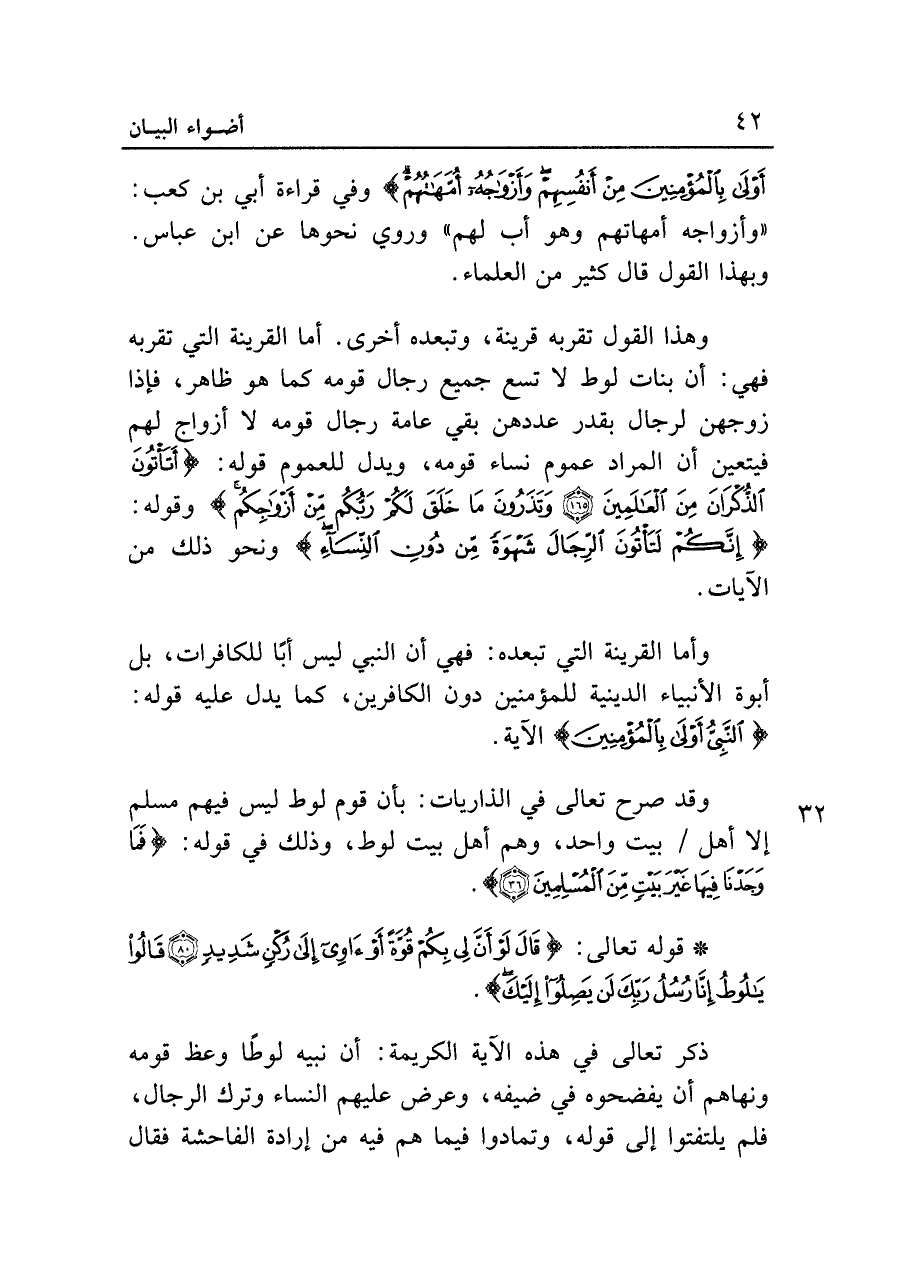 ٤٢ أضواء البيان
أَوْلَىٰ بِٱلْمُؤْمِنِينَ مِنْ أَنفُسِهِمْۖ وَأَزْوَٰجُهُۥٓ أُمَّهَٰتُهُمْۗ﴾ وفي قراءة أبي بن كعب:
«وأزواجه أمهاتهم وهو أب لهم» وروي نحوها عن ابن عباس.
وبهذا القول قال كثير من العلماء.
وهذا القول تقربه قرينة، وتبعده أخرى. أما القرينة التي تقربه
فهي: أن بنات لوط لا تسع جميع رجال قومه كما هو ظاهر، فإذا
زوجهن لرجال بقدر عددهن بقي عامة رجال قومه لا أزواج لهم
فيتعين أن المراد عموم نساء قومه، ويدل للعموم قوله: ﴿أَتَأْتُونَ
ٱلذُّكْرَانَ مِنَ ٱلْعَٰلَمِينَ ١٦٥ وَتَذَرُونَ مَا خَلَقَ لَكُمْ رَبُّكُم مِّنْ أَزْوَٰجِكُمۚ﴾ وقوله:
﴿إِنَّكُمْ لَتَأْتُونَ ٱلرِّجَالَ شَهْوَةً مِّن دُونِ ٱلنِّسَآءِۚ﴾ ونحو ذلك من
الآيات.
وأما القرينة التي تبعده: فهي أن النبي ليس أبًا للكافرات، بل
أبوة الأنبياء الدينية للمؤمنين دون الكافرين، كما يدل عليه قوله:
﴿ٱلنَّبِيُّ أَوْلَىٰ بِٱلْمُؤْمِنِينَ﴾ الآية.
وقد صرح تعالى في الذاريات: بأن قوم لوط ليس فيهم مسلم
٣٢
إلا أهل / بيت واحد، وهم أهل بيت لوط، وذلك في قوله: ﴿فَمَا
وَجَدْنَا فِيهَا غَيْرَ بَيْتٍ مِّنَ ٱلْمُسْلِمِينَ ٣٦﴾.
* قوله تعالى: ﴿قَالَ لَوْ أَنَّ لِي بِكُمْ قُوَّةً أَوْ ءَاوِىٓ إِلَىٰ رُكْنٍ شَدِيدٍ ٨٠ قَالُوا۟
يَٰلُوطُ إِنَّا رُسُلُ رَبِّكَ لَن يَصِلُوٓا۟ إِلَيْكَۖ﴾.
ذكر تعالى في هذه الآية الكريمة: أن نبيه لوطًا وعظ قومه
ونهاهم أن يفضحوه في ضيفه، وعرض عليهم النساء وترك الرجال،
فلم يلتفتوا إلى قوله، وتمادوا فيما هم فيه من إرادة الفاحشة فقال